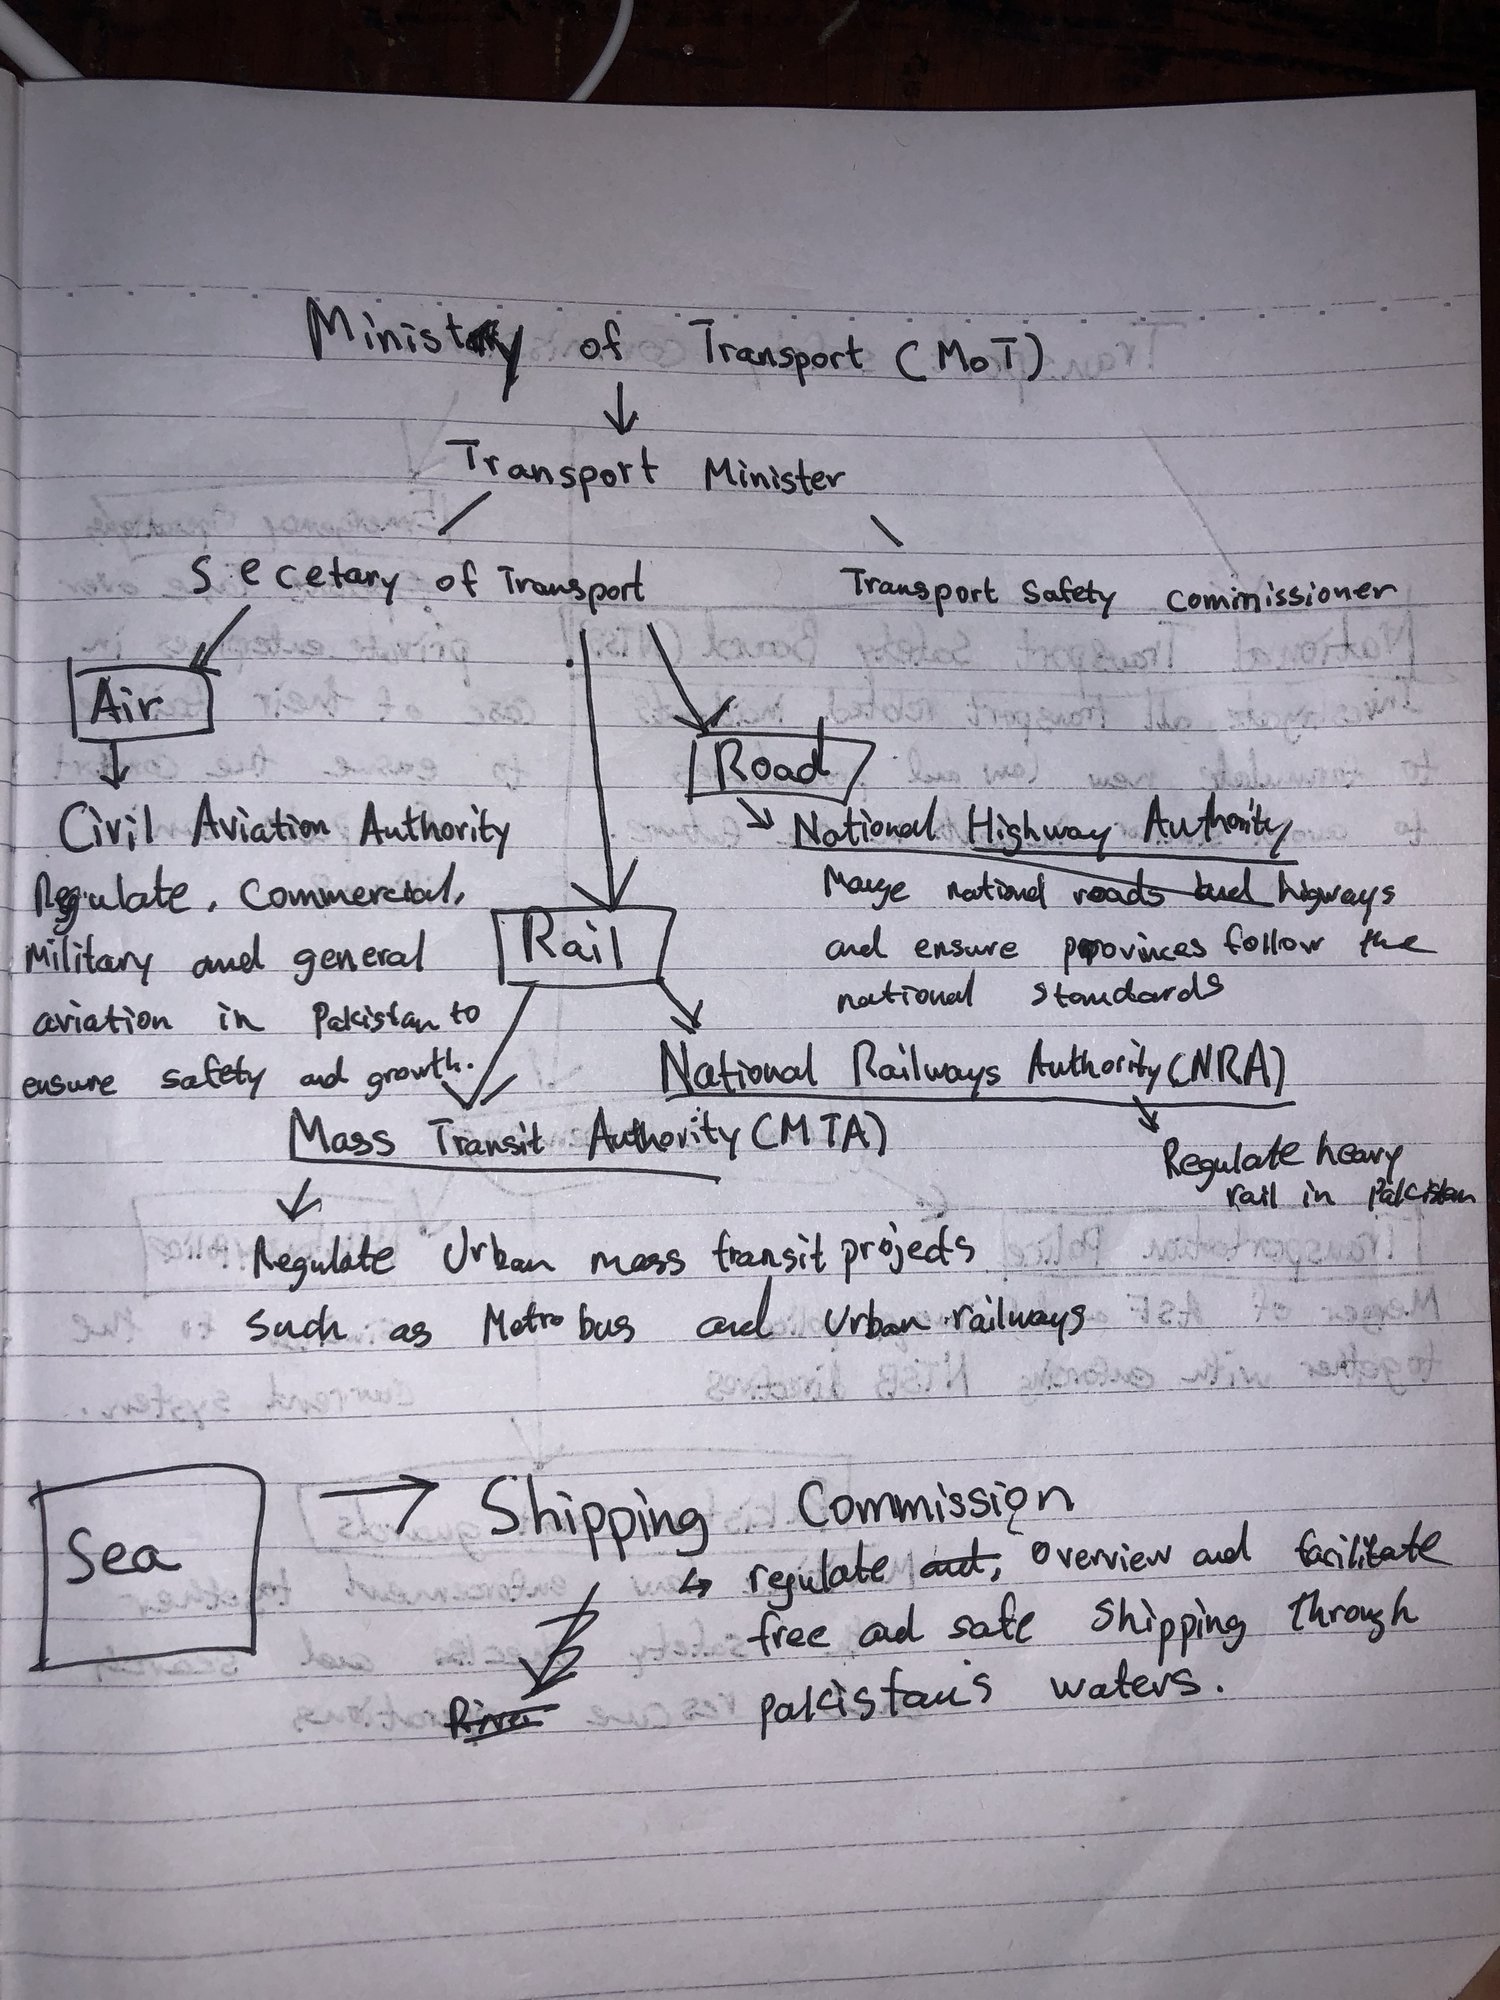 Ministry of Transport (MoT)
Transport Minister
Secetary of Transport
Transport Safety Commissioner
Air
Road
Civil Aviation Authority
Regulate, Commercial,
Military and general
aviation in Pakistan to
ensure safety and growth.
National Highway Authority
national roads and higways
and ensure provinces follow the
national standards
Rail
National Railways Authority (NRA)
Regulate heavy
rail in Pakistan
Mass Transit Authority (MTA)
Regulate Urban mass transit projects
such as Metrobus and Urban railways
Sea
Shipping Commission
regulate and, overview and facilitate
free and safe shipping through
pakistan's waters.
River